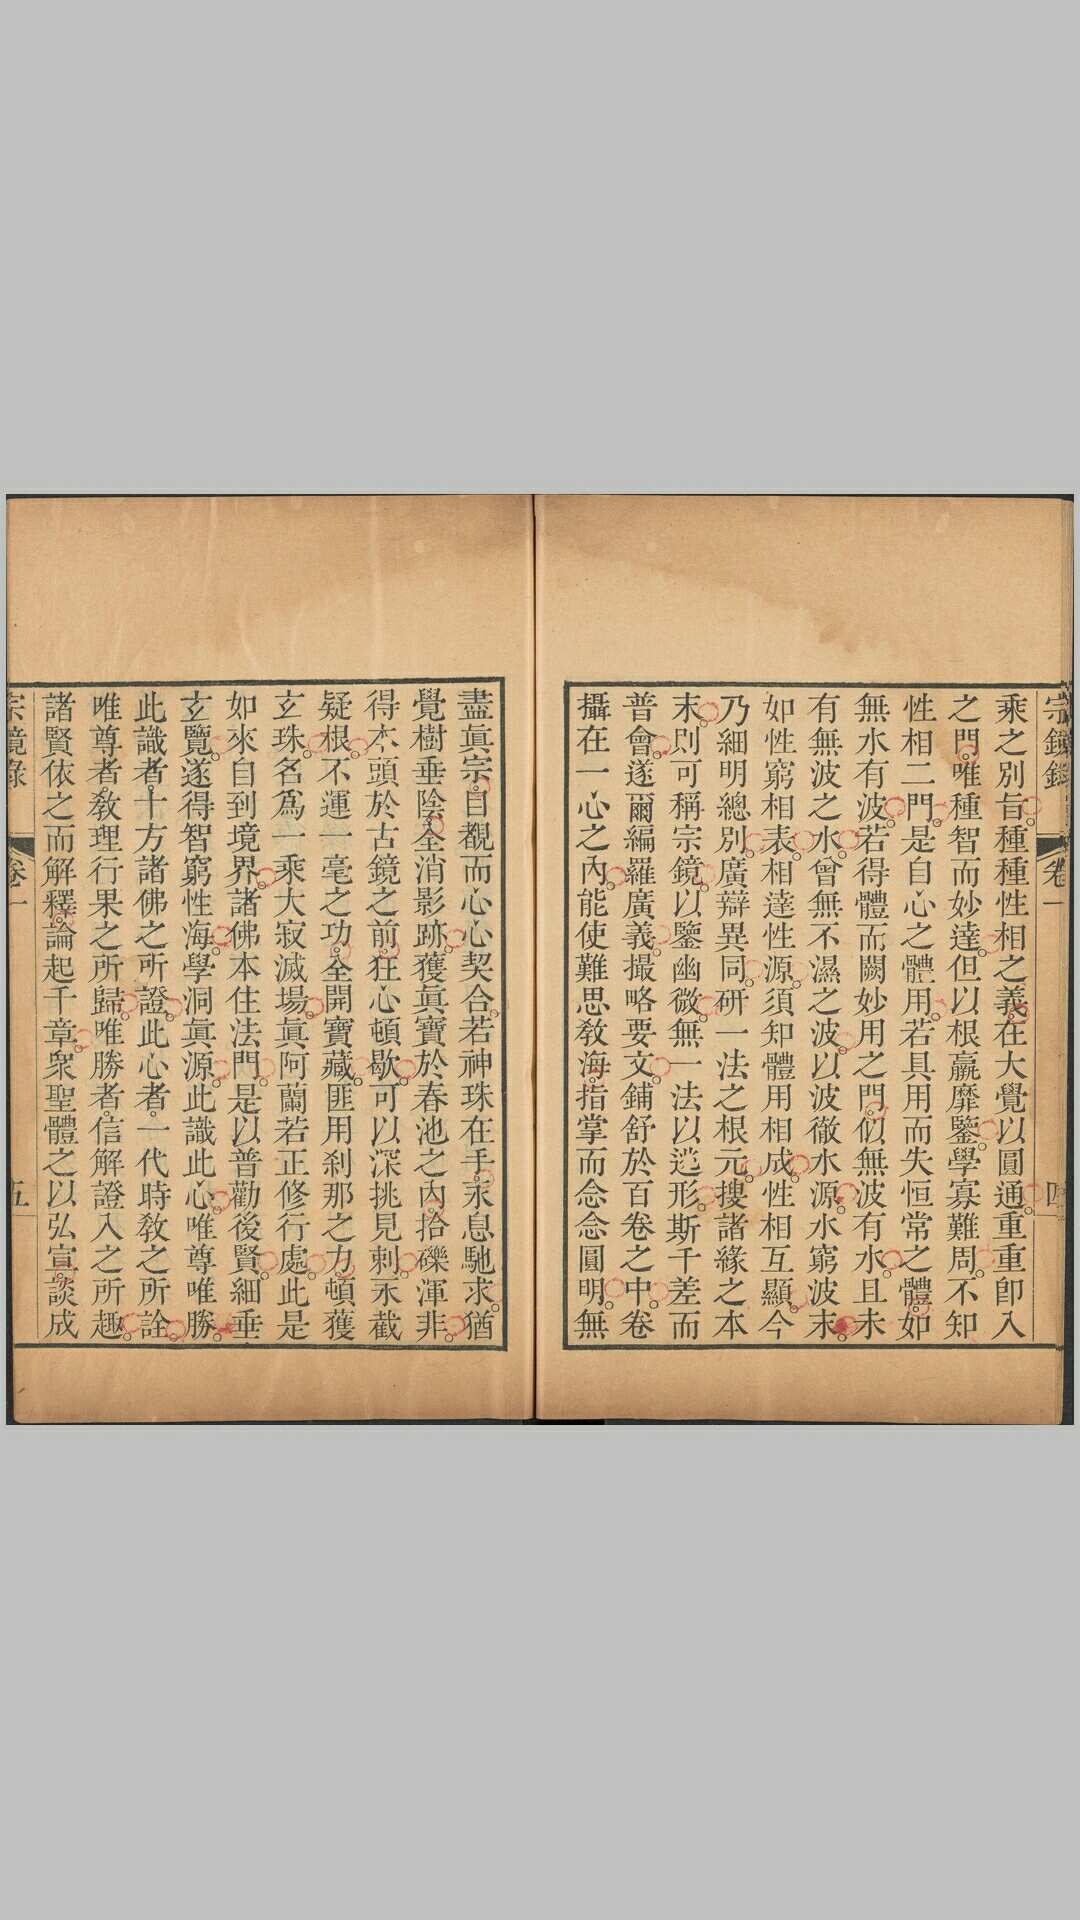 宗鏡錄 卷一 四
乘之別旨。種種性相之義。在大覺以圓通。重重卽入
之門。唯種智而妙達。但以根羸靡鑒。學寡難周。不知
性相二門。是自心之體用。若具用而失恒常之體。如
無水有波。若得體而闕妙用之門。似無波有水。且未
有無波之水。曾無不濕之波。以波徹水源。水窮波末。
如性窮相表。相達性源。須知體用相成。性相互顯。今
乃細明總別。廣辯異同。研一法之根元。搜諸緣之本
末。則可稱宗鏡。以鑒幽微。無一法以逃形。斯千差而
普會。遂爾編羅廣義。撮略要文。鋪舒於百卷之中。卷
攝在一心之內。能使難思教海。指掌而念念圓明。無
盡眞宗。目覩而心心契合。若神珠在手。永息馳求。猶
覺樹垂陰。全消影跡。獲眞寶於春池之內。拾礫渾非。
得本頭於古鏡之前。狂心頓歇。可以深挑見刺。永截
疑根。不運一毫之功。全開寶藏。匪用刹那之力。頓獲
玄珠。名爲一乘大寂滅場。眞阿蘭若正修行處。此是
如來自到境界。諸佛本住法門。是以普勸後賢。細垂
玄覽。遂得智窮性海。學洞眞源。此識此心。唯尊唯勝。
此識者。十方諸佛之所證。此心者。一代時教之所詮。
唯尊者。教理行果之所歸。唯勝者。信解證入之所趣。
諸賢依之而解釋。論起千章。衆聖體之以弘宣。談成
宗鏡錄 卷一 五